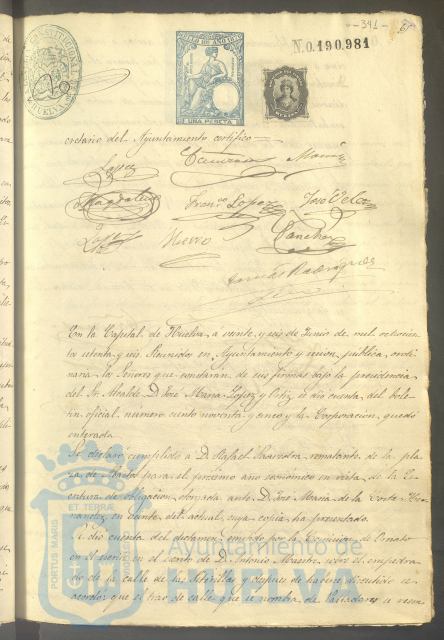 -341-
N. 0.190,981
SELLO DE AÑO 187
UNA PESETA
cretario del Ayuntamiento certifico
Lopez
Magdalena Franco Lopez José Vela
Hierro Sanchez
Tomás Rodriguez
En la Capital de Huelva a veinte y seis de Junio de mil ochocien
tos setenta y seis Reunidos en Ayuntamiento y sesion publica ordi
naria los Señores que constarán de sus firmas bajo la presidencia
del Sr. Alcalde D. José Maria Lopez y Ortiz se dió cuenta del bole
tin oficial numero ciento noventa y cinco y la Corporacion quedó
enterada.
Se declaró cumplido á D. Rafael Saavedra rematante de la pla
za de Abastos para el procsimo año económico en vista de la Es
critura de obligacion otorgada ante D. José Maria de la Corte Her
nandez en veinte del actual, cuya copia ha presentado.
Se dió cuenta del dictamen emitido por la Comision de Ornato
en el escrito de D. Antonio Maestre sobre el empedra
do de la calle de las y despues de haberse discutido se
acordó que el trozo de calle que se nombra de se
PORTUS MARIS
ET TERRÆ
Ayuntamiento de
HUELVA